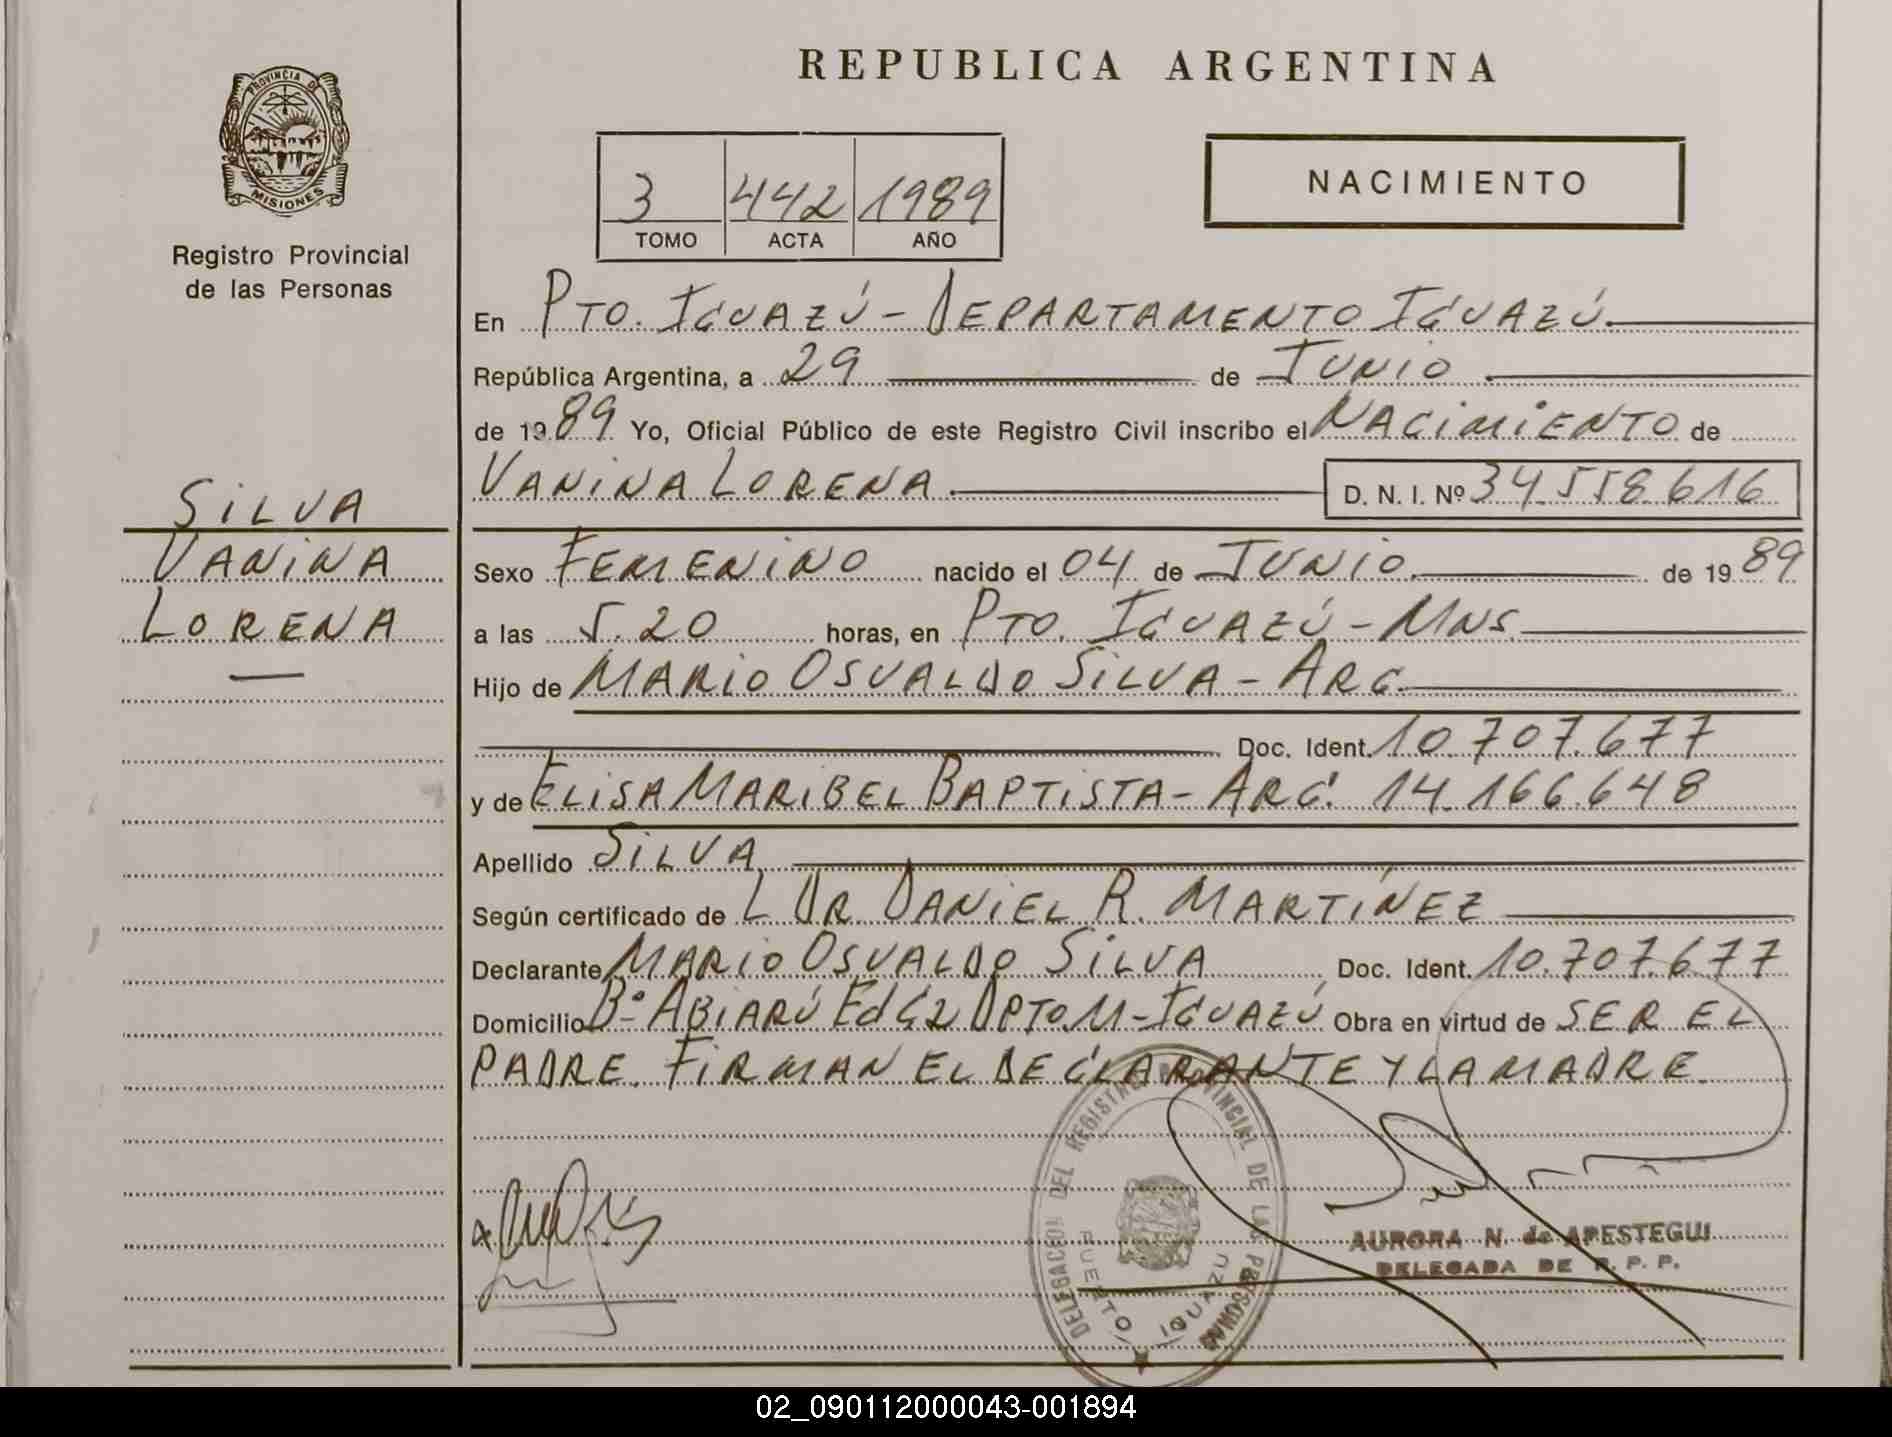 PROVINCIA DE
MISIONES
Registro Provincial
de las Personas
SILVA
VANINA
LORENA
REPUBLICA ARGENTINA
3 442 1989
TOMO ACTA AÑO
NACIMIENTO
En PTO. IGUAZÚ - DEPARTAMENTO IGUAZÚ.
República Argentina, a 29 de JUNIO
de 1989 Yo, Oficial Público de este Registro Civil inscribo el NACIMIENTO de
VANINA LORENA. D. N. I. Nº 34.558.616
Sexo FEMENINO nacido el 04 de JUNIO de 1989
a las 5.20 horas, en PTO. IGUAZÚ - MNS
Hijo de MARIO OSVALDO SILVA - ARG.
Doc. Ident. 10.707.677
y de ELISA MARIBEL BAPTISTA - ARG. 14.166.648
Apellido SILVA
Según certificado de L DR. DANIEL R. MARTÍNEZ
Declarante MARIO OSVALDO SILVA Doc. Ident. 10.707.677
Domicilio Bº ABIARÚ Ed G2 DPTO. M - IGUAZÚ Obra en virtud de SER EL
PADRE. FIRMAN EL DECLARANTE Y LA MADRE.
DELEGACION DEL REGISTRO PROVINCIAL DE LAS PERSONAS
PUERTO IGUAZU
AURORA N. de APESTEGUI
DELEGADA DE R. P. P.
02_090112000043-001894